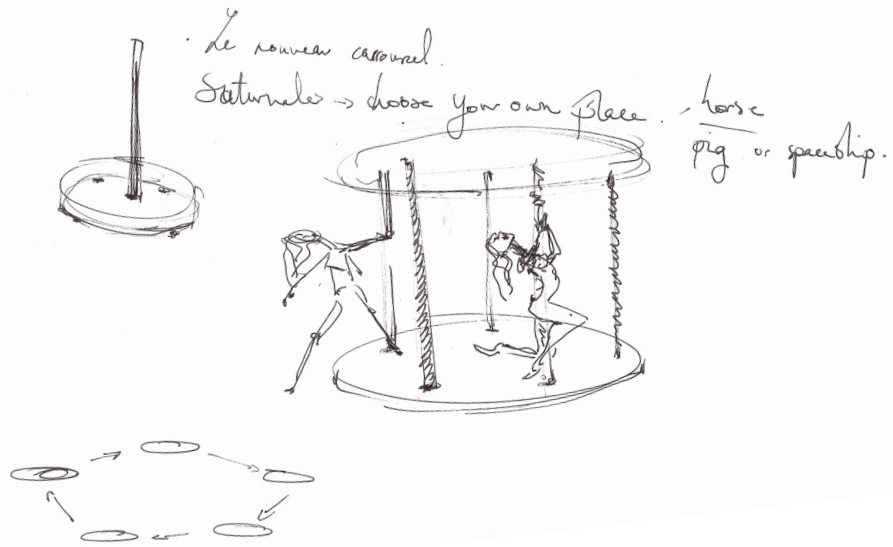 . Le nouveau carrousel.
Saturnales → choose your own place. → horse
pig or spaceship.